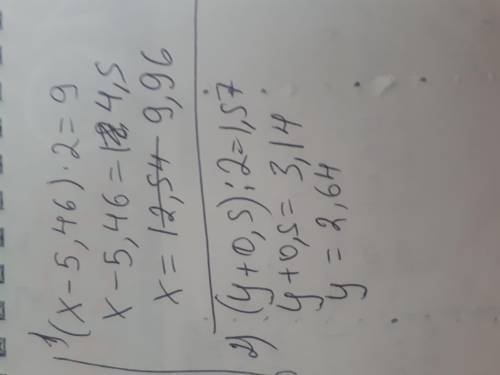 1) (x-5,46)·2=9
x-5,46=4,5
x=9,96
2) (y+0,5):2=1,57
y+0,5=3,14
y=2,64